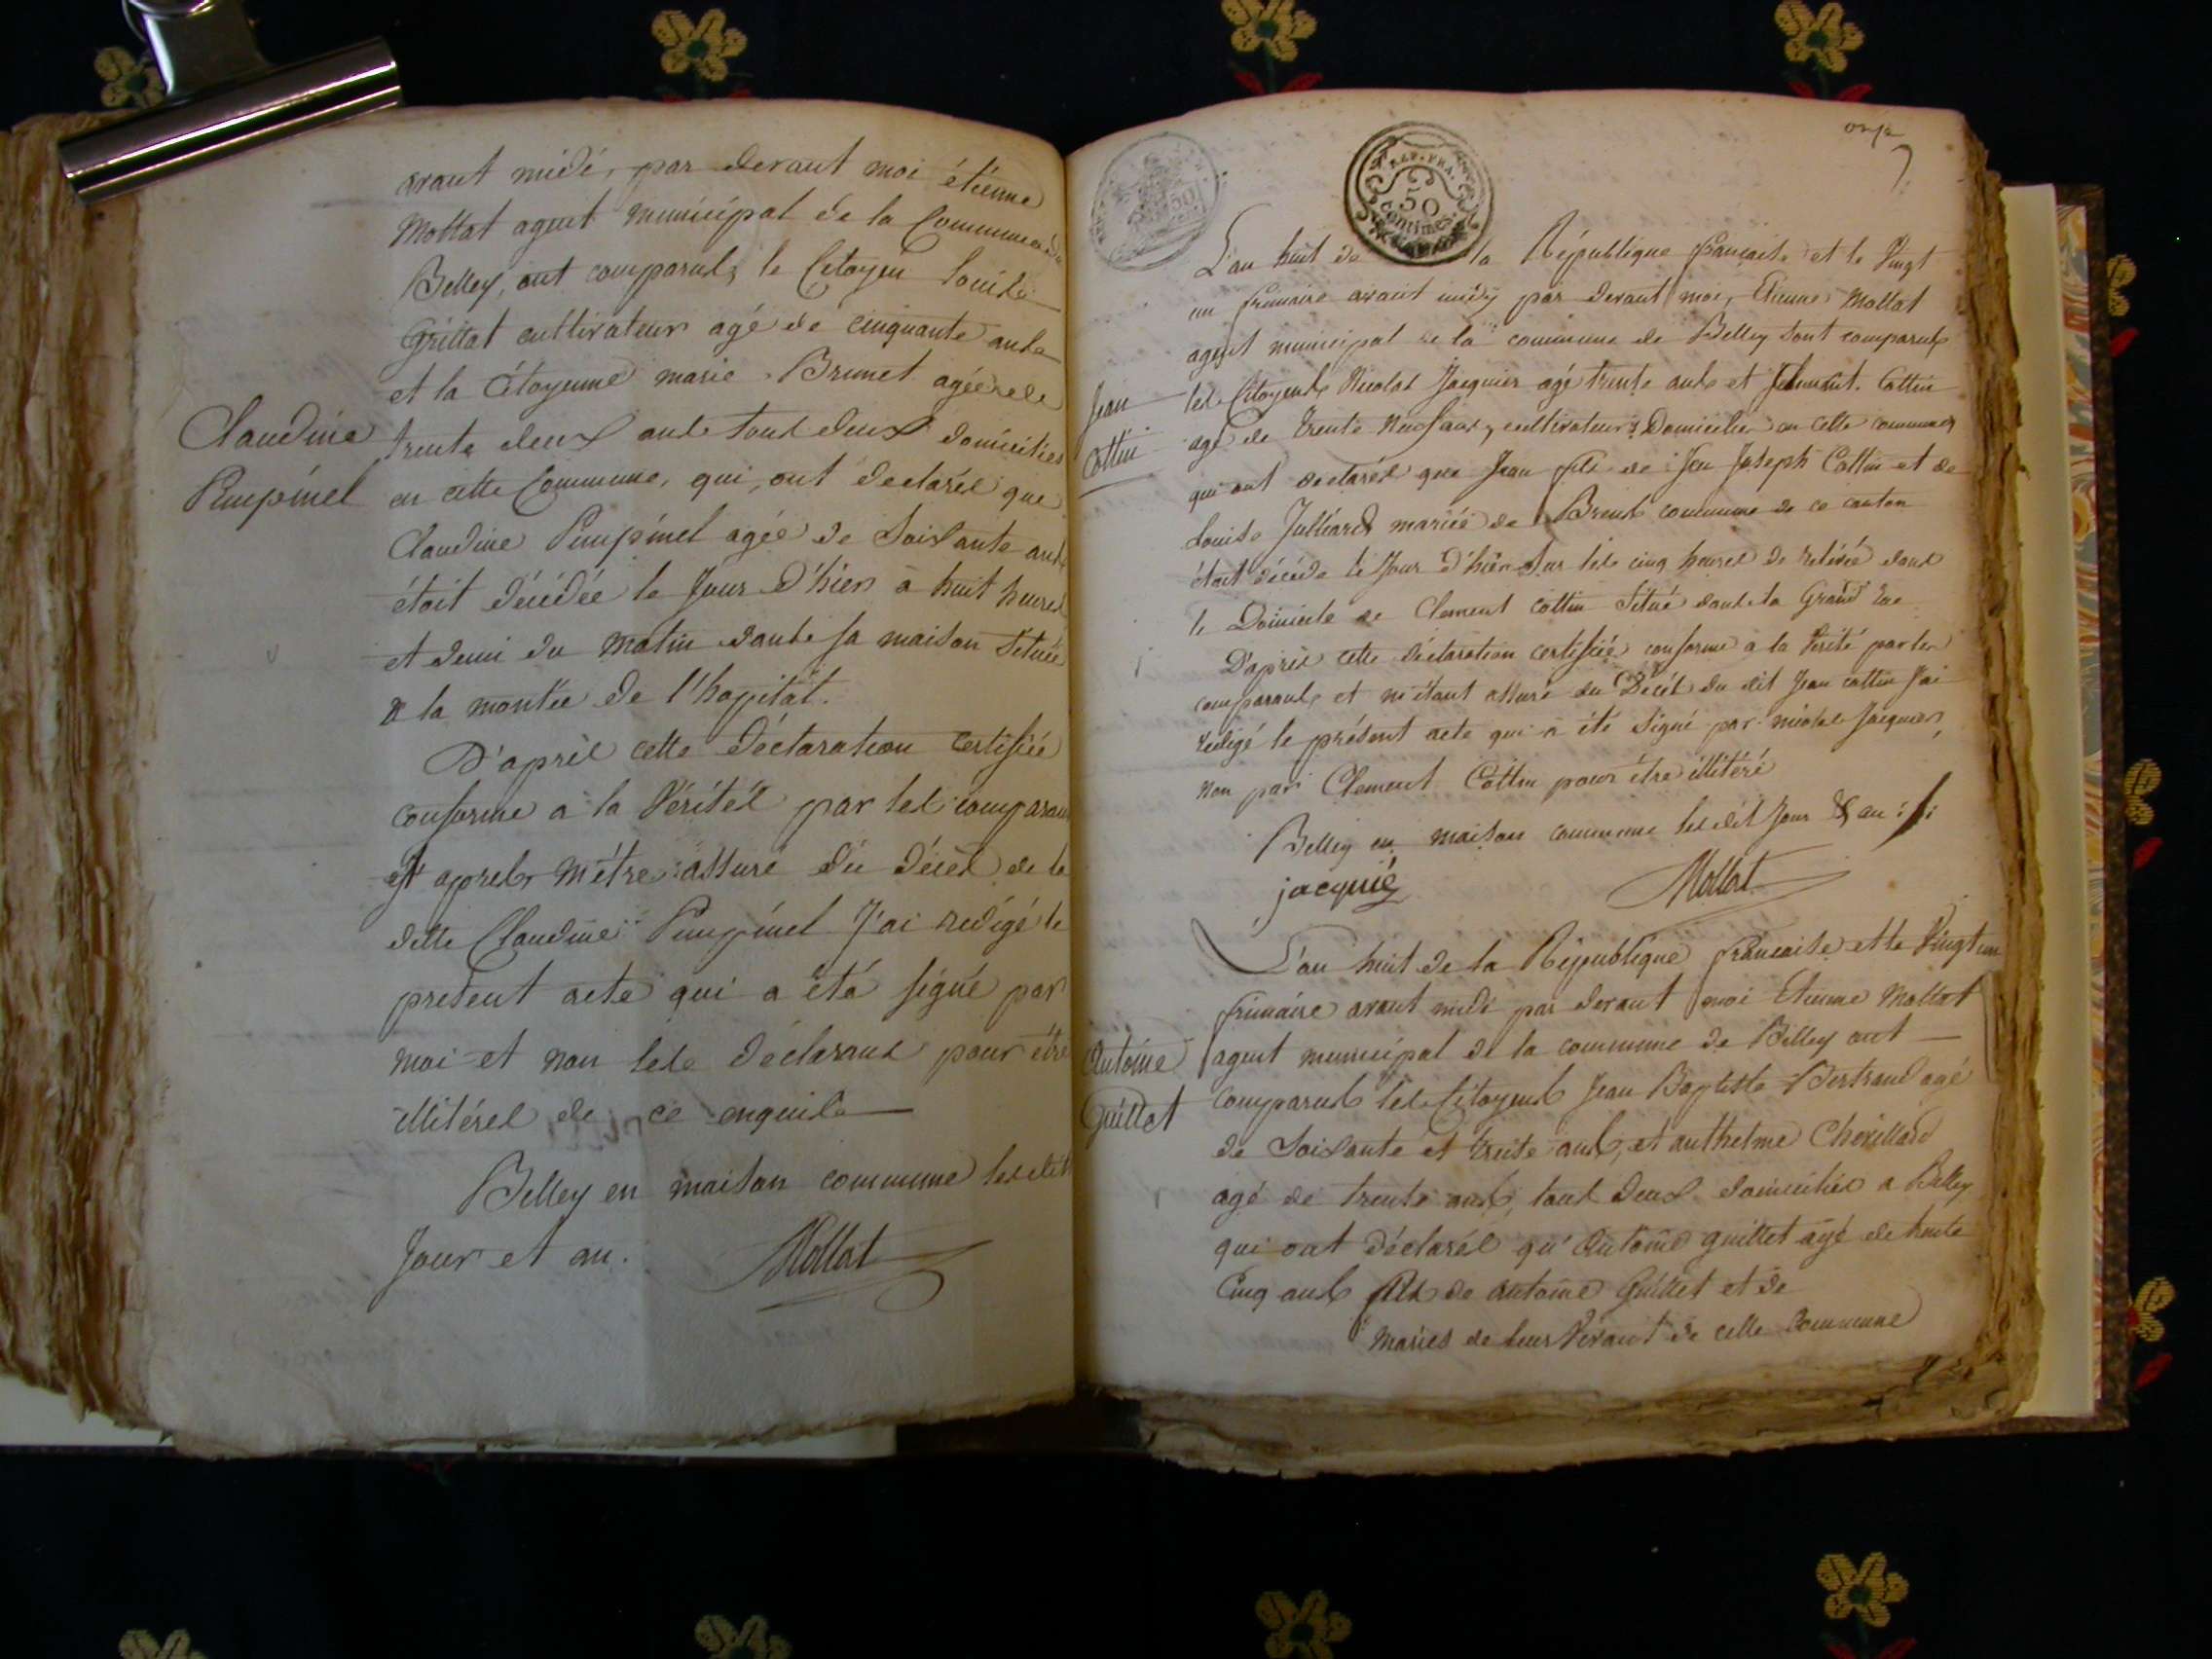 avant midi, par devant moi étienne
Mollat agent municipal de la Commune de
Belley, ont comparut, le Citoyen Louis
Grillat cultivateur agé de cinquante ans
et la Citoyenne marie Brunet agée de
Claudine
Pimpinel
trente deux ans tous deux domiciliés
en cette Commune, qui, ont declarés que
Claudine Pimpinel agée de Soixante ans
étoit décédée le Jour d'hier à huit heures
et demi du matin dans sa maison Située
a la montée de l'hopital.
D'après cette Déclaration certifiée
conforme a la Vérité par les comparans
et après m'étre assuré du décès de la
ditte Claudine Pimpinel J'ai redigé le
présent acte qui a été signé par
moi et non les déclarans pour être
illitérés de ce enquis
Belley en maison commune les dits
Jour et an.
Mollat
onze
REP. FRA.
50
centimes.
L'an huit de la République francaise et le Vingt
un frimaire avant midy par devant moi, Etienne Mollat
agent municipal de la commune de Belley sont comparuts
Jean
Cottin
les Citoyens Nicolas Jacquier agé trente ans et Clement Cottin
agé de trente neuf ans, cultivateurs Domiciliés en cette commune
qui ont declarés que Jean fils de feu Joseph Cottin et de
Louise Julliard mariée de Brens commune de ce canton
étoit décédé le Jour d'hier sur les cinq heures de relevée dans
le Domicile de Clement Cottin Situé dans la Grand rue
D'après cette déclaration certifiée conforme a la Vérité par les
comparans, et m'étant assuré du Décès du dit Jean Cottin J'ai
rédigé le présent acte qui a été Signé par nicolas Jacquier,
non par Clement Cottin pour être illitéré
Belley en maison commune les dit Jour & an
jacquié
Mollat
L'an huit de la République francaise et le Vingt un
frimaire avant midi par devant moi Etienne Mollat
Antoine
Guillet
agent municipal de la commune de Belley ont
comparut les Citoyens Jean Baptiste Bertrand agé
de Soixante et treize ans, et anthelme Chevillard
agé de trente ans, tous deux domiciliés a Belley
qui ont déclarés qu'Antoine guillet agé de trente
Cinq ans fils de antoine Guillet et de
mariés de leur Vivant de cette Commune